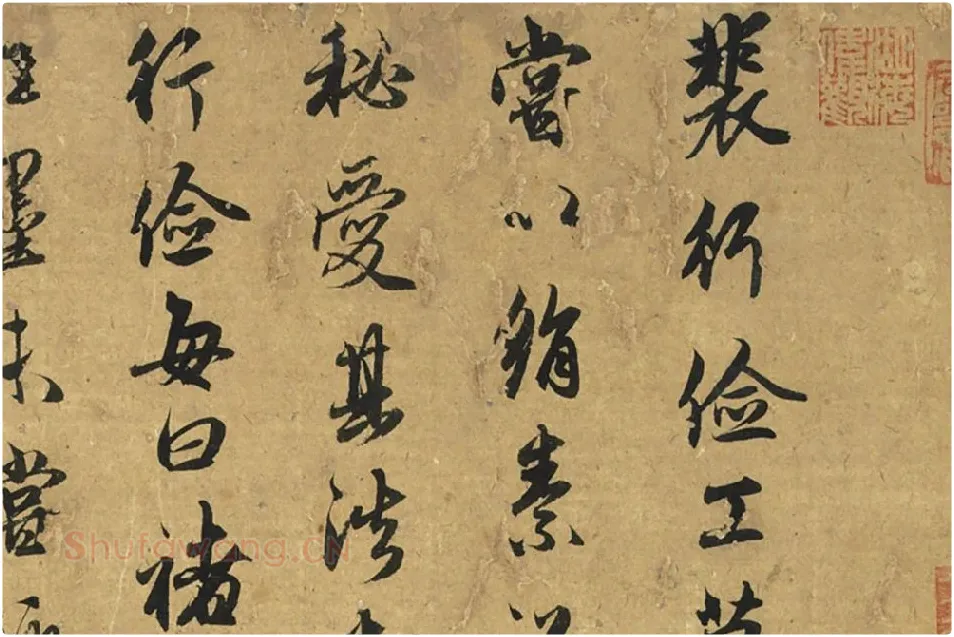 裴行儉工草
嘗以絹素
秘愛其法
行儉每曰褚
佳墨未嘗
Shufawang.CN